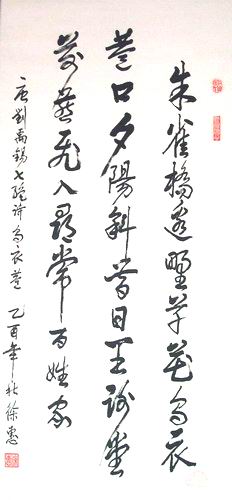 朱雀橋邊野草花烏衣
巷口夕陽斜昔日王謝堂
前燕飛入尋常百姓家
唐劉禹錫七絕詩烏衣巷 乙酉年秋徐惠